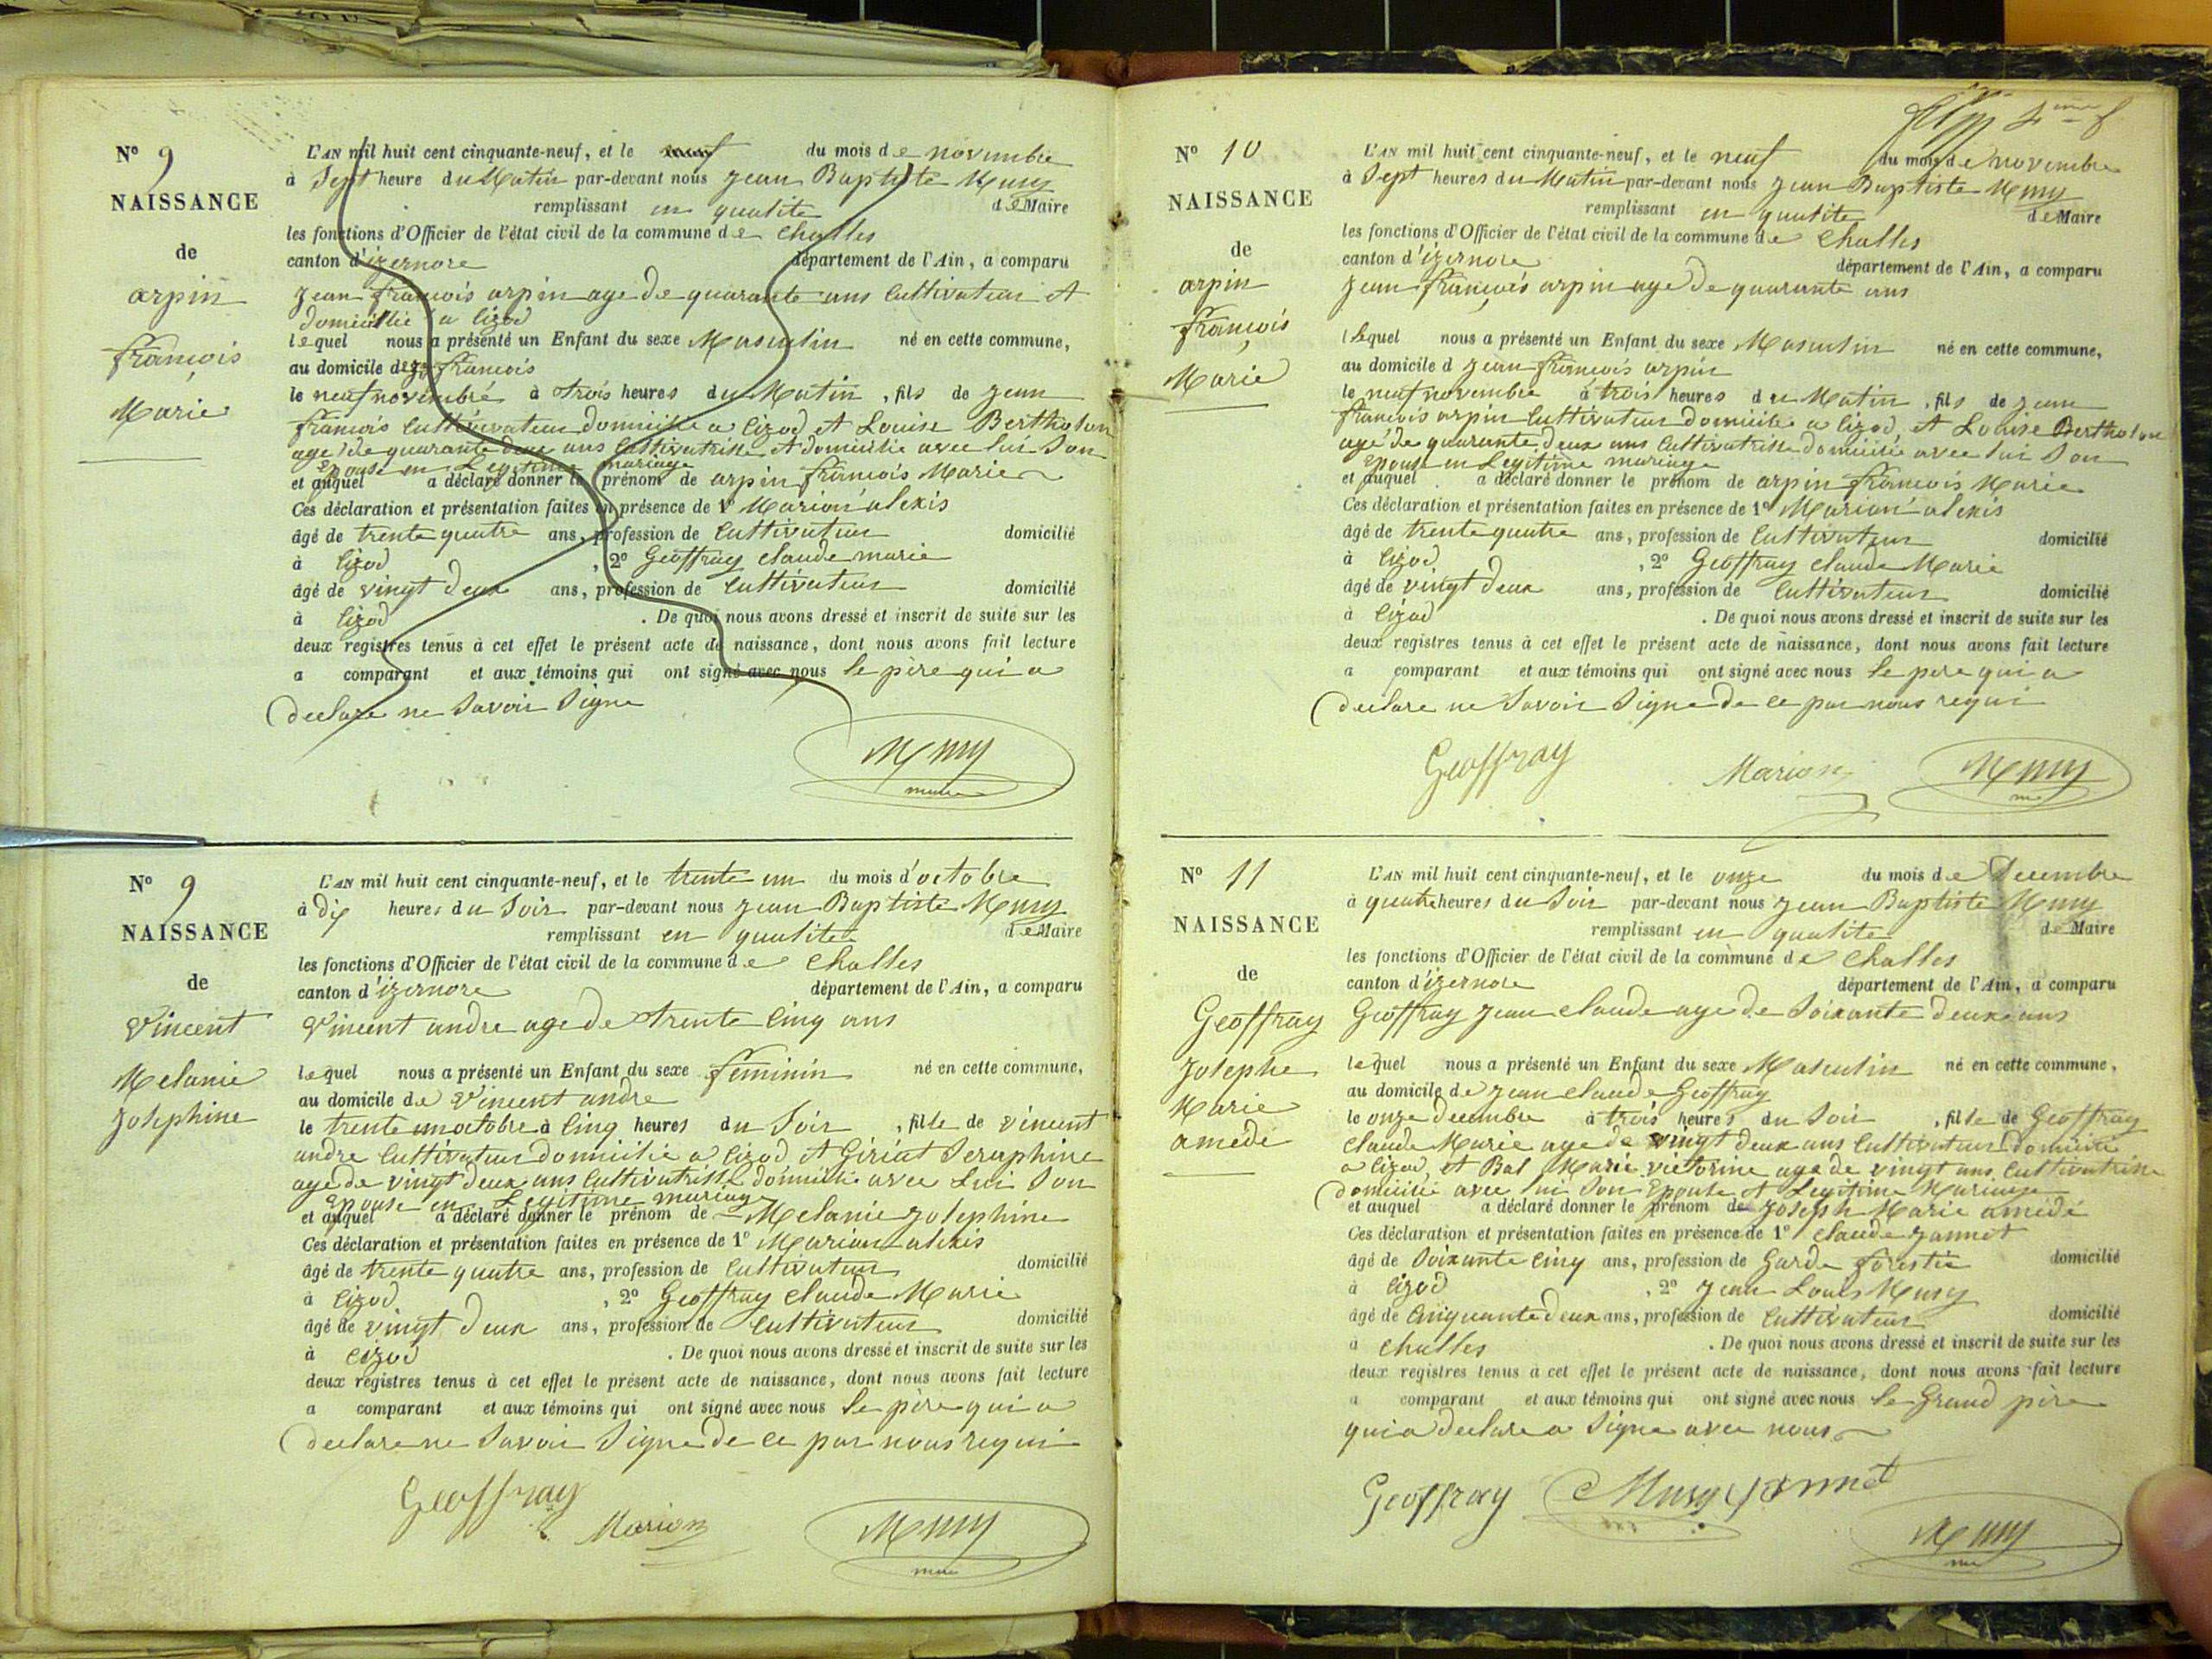 N° 9
NAISSANCE
de
arpin
françois
Marie
L'AN mil huit cent cinquante-neuf, et le neuf du mois de novembre
à Sept heure du Matin par-devant nous jean Baptiste Musy
remplissant en qualite de Maire
les fonctions d'Officier de l'état civil de la commune de Challes
canton d'izernore département de l'Ain, a comparu
jean françois arpin age de quarante ans Cultivateur et
domicilié a Cizod
lequel nous a présenté un Enfant du sexe Masculin né en cette commune,
au domicile de françois
le neuf novembre à trois heures du Matin, fils de jean
françois Cultivateur domicilie a Cizod et Louise Bertholon
age de quarante deux ans Cultivatrisse et domicilie avec lui Son
Epouse en Legitime mariage
et auquel a déclaré donner le prénom de arpin françois Marie
Ces déclaration et présentation faites en présence de 1° Marion alexis
âgé de trente quatre ans, profession de Cultivateur domicilié
à Cizod , 2° Geoffray Claude marie
âgé de vingt deux ans, profession de Cultivateur domicilié
à Cizod . De quoi nous avons dressé et inscrit de suite sur les
deux registres tenus à cet effet le présent acte de naissance, dont nous avons fait lecture
a comparant et aux témoins qui ont signé avec nous le père qui a
declare ne Savoir Signe
Musy
maire
N° 9
NAISSANCE
de
Vincent
Melanie
josephine
L'AN mil huit cent cinquante-neuf, et le trente un du mois d'octobre
à dix heures du Soir par-devant nous jean Baptiste Musy
remplissant en qualite de Maire
les fonctions d'Officier de l'état civil de la commune de Challes
canton d'izernore département de l'Ain, a comparu
Vincent andre age de trente Cinq ans
lequel nous a présenté un Enfant du sexe feminin né en cette commune,
au domicile de Vincent andre
le trente un octobre à Cinq heures du Soir, fille de vincent
andre Cultivateur domicilie a Cizod et Giriat Seraphine
age de vingt deux ans Cultivatrisse domicilie avec Lui Son
Epouse en Legitime mariage
et auquel a déclaré donner le prénom de Melanie josephine
Ces déclaration et présentation faites en présence de 1° Marion alexis
âgé de trente quatre ans, profession de Cultivateur domicilié
à Cizod , 2° Geoffray Claude Marie
âgé de vingt deux ans, profession de Cultivateur domicilié
à Cizod . De quoi nous avons dressé et inscrit de suite sur les
deux registres tenus à cet effet le présent acte de naissance, dont nous avons fait lecture
a comparant et aux témoins qui ont signé avec nous le père qui a
declare ne Savoir Signe de ce par nous requi
Geoffray Marion Musy
maire
N° 10
NAISSANCE
de
arpin
françois
Marie
L'AN mil huit cent cinquante-neuf, et le neuf du mois de novembre
à Sept heures du Matin par-devant nous jean Baptiste Musy
remplissant en qualite de Maire
les fonctions d'Officier de l'état civil de la commune de Challes
canton d'izernore département de l'Ain, a comparu
jean françois arpin age de quarante ans
lequel nous a présenté un Enfant du sexe Masculin né en cette commune,
au domicile d jean françois arpin
le neuf novembre à trois heures du Matin, fils de jean
francois arpin Cultivateur domicilie a Cizod, et Louise Bertholon
age de quarante deux ans Cultivatrisse domicilié avec lui Son
Epouse en Legitime mariage
et auquel a déclaré donner le prénom de arpin françois Marie
Ces déclaration et présentation faites en présence de 1° Marion alexis
âgé de trente quatre ans, profession de Cultivateur domicilié
à Cizod , 2° Geoffray Claude Marie
âgé de vingt deux ans, profession de Cultivateur domicilié
à Cizod . De quoi nous avons dressé et inscrit de suite sur les
deux registres tenus à cet effet le présent acte de naissance, dont nous avons fait lecture
a comparant et aux témoins qui ont signé avec nous le pere qui a
declare ne Savoir Signe de ce par nous requi
Geoffray Marion Musy
N° 11
NAISSANCE
de
Geoffray
josephe
Marie
amédé
L'AN mil huit cent cinquante-neuf, et le onze du mois de Decembre
à quatre heures du Soir par-devant nous jean Baptiste Musy
remplissant en qualite de Maire
les fonctions d'Officier de l'état civil de la commune de Challes
canton d'izernore département de l'Ain, a comparu
Geoffray jean claude age de Soixante deux ans
lequel nous a présenté un Enfant du sexe Masculin né en cette commune,
au domicile de jean claude Geoffray
le onze decembre à trois heures du Soir, fils de Geoffray
Claude Marie age de vingt deux ans Cultivateur domicilie
a Cizod, et Bal Marie victorine age de vingt ans Cultivatrisse
domicilié avec lui Son Epouse et Legitime Mariage
et auquel a déclaré donner le prénom de joseph Marie amédé
Ces déclaration et présentation faites en présence de 1° Claude jannet
âgé de Soixante Cinq ans, profession de Garde forestie domicilié
à Cizod , 2° jean Louis Musy
âgé de Cinquante deux ans, profession de Cultivateur domicilié
à Challes . De quoi nous avons dressé et inscrit de suite sur les
deux registres tenus à cet effet le présent acte de naissance, dont nous avons fait lecture
a comparant et aux témoins qui ont signé avec nous le Grand père
qui a declare a Signe avec nous
Geoffray Musy jannet
Musy